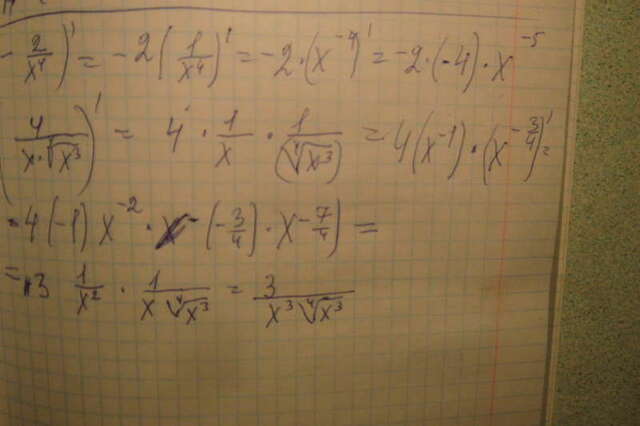 - 2/x⁴)' = -2(1/x⁴)' = -2·(x⁻⁴)' = -2·(-4)·x⁻⁵
(4/(x·∜x³))' = 4·1/x·1/(∜x³) = 4(x⁻¹)·(x^(-3/4))' =
= 4(-1)x⁻²·(-3/4)·x^(-7/4)) =
= 3 1/x²·1/(x∜x³) = 3/(x³∜x³)